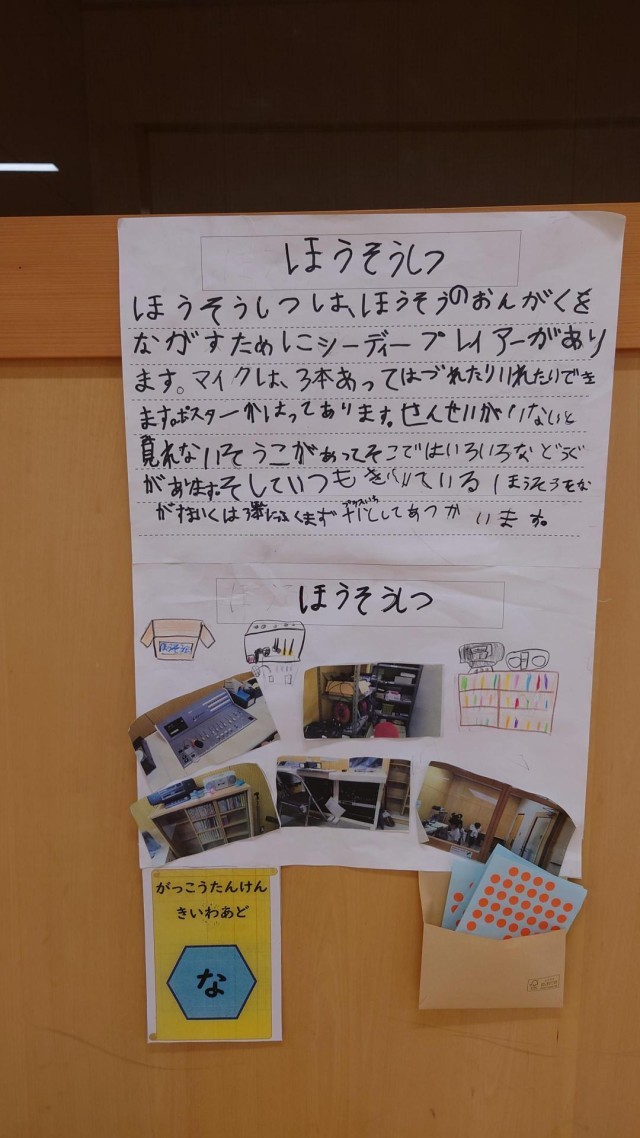 ほうそうしつ
ほうそうしつは、ほうそうのおんがくを
ながすためにシーディープレイアーがあり
ます。マイクは、3本あってはづれたりいれたりでき
ます。ポスターがはってあります。せんせいがいないと
見れないそうこがあってそこではいろいろなどうぐ
があります。そしていつもきいている ほうそうをな
がす
います。
ほうそうしつ
ほうそうしつ
がっこうたんけん
きいわあど
な